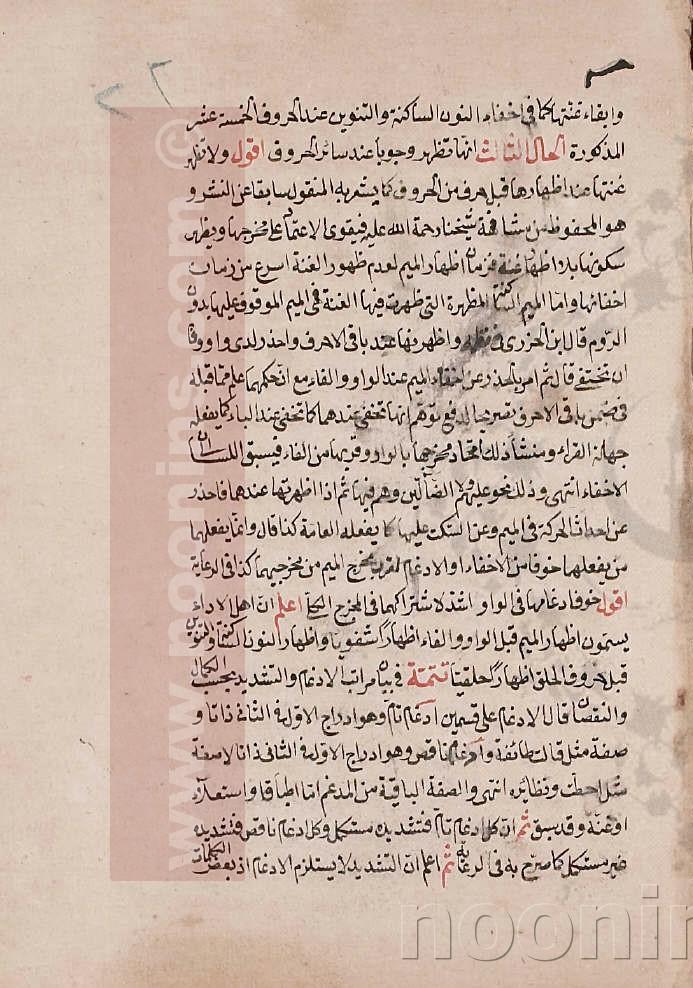 وابقاء غنتها كما في اخفاء النون الساكنة والتنوين عند الحروف الخمسة عشر
المذكورة الحال الثالث انها تظهر وجوبا عند سائر الحروف اقول ولا تظهر
غنتها عند اظهارها قبل حرف من الحروف كما يشعر به المنقول سابقا عن النشر و
هو المحفوظ من مشافهة شيخنا رحمة الله عليه فيقوى الاعتماد على مخرجها ويظهر
سكونها بلا اظهار غنة فزمان اظهار الميم لعدم ظهور الغنة اسرع من زمان
اخفائها واما الميم الساكنة المظهرة التي ظهرت فيها الغنة فهي الميم الموقوف عليها بدون
الروم قال ابن الجزري في نظمه واظهرنها عند باقي الاحرف واحذر لدى واو وفا
ان تختفي قال ثم امر بالحذر عن اخفاء الميم عند الواو والفاء مع ان حكمهما علم مما قبله
في ضمن باقي الاحرف تصريحا لدفع توهم انها تخفى عندهما كما تخفى عند الباء كما يفعله
جهلة القراء ومنشأ ذلك اتحاد مخرجها بالواو وقربها من الفاء فيسبق اللسان الى
الاخفاء انتهى وذلك نحو عليهم ولا الضالين وهم فيها ثم اذا اظهرتها عندهما فاحذر
عن احداث الحركة في الميم وعن السكت عليها كما يفعله العامة كذا قال وانما يفعلهما
من يفعلهما خوفا من الاخفاء او الادغام لقرب مخرج الميم من مخرجيهما كذا في الرعاية
اقول خوف ادغامها في الواو اشد لاشتراكهما في المخرج الكلي اعلم ان اهل الاداء
يسمون اظهار الميم قبل الواو والفاء اظهارا شفويا واظهار النون الساكنة والتنوين
قبل حروف الحلق اظهارا حلقيا تتمة في بيان مراتب الادغام والتشديد بحسب الكمال
والنقصان قال الادغام على قسمين ادغام تام وهو ادراج الاول في الثاني ذاتا و
صفة مثل قالت طائفة وادغام ناقص وهو ادراج الاول في الثاني ذاتا لا صفة
مثل احطت ونظائره انتهى والصفة الباقية من المدغم اما اطباقا واستعلاء
او غنة وقد سبق ثم ان كل ادغام تام فتشديده مستكمل وكل ادغام ناقص فتشديده
غير مستكمل كما صرح به في الرعاية ثم اعلم ان التشديد لا يستلزم الادغام اذ بعض الكلمات
www.noonins.com ©
noonin